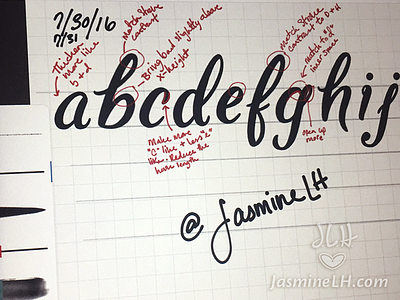 7/30/16
7/31
Thicken
more like
b + d
match stroke
contrast
Bring bowl slightly above
x-height
match stroke
contrast to b + d
match to "g"
inner space
abcdefghij
make more
"C" like + less "e"
like. Reduce the
horn length
Open up
more
@JasmineLH
JLH
JasmineLH.com